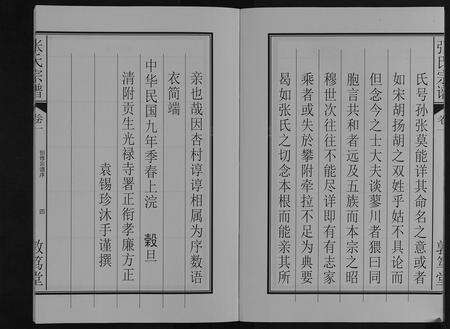 张氏宗谱
卷
敦笃堂
氏号孙张莫能详其命名之意或者
如宋胡扬胡之双姓乎姑不具论而
但念今之士大夫谈蓼川者猥曰同
胞言共和者远及五族而本宗之昭
穆世次往往不能尽详即有有志家
乘者或失於攀附牵拉不足为典要
曷如张氏之切念本根而能亲其所
亲也哉因杏村谆谆相属为序数语
衣简端
中华民国九年季春上浣 榖旦
清附贡生光禄寺署正衔孝廉方正
袁锡珍沐手谨撰
张氏宗谱
卷一
四
敦笃堂